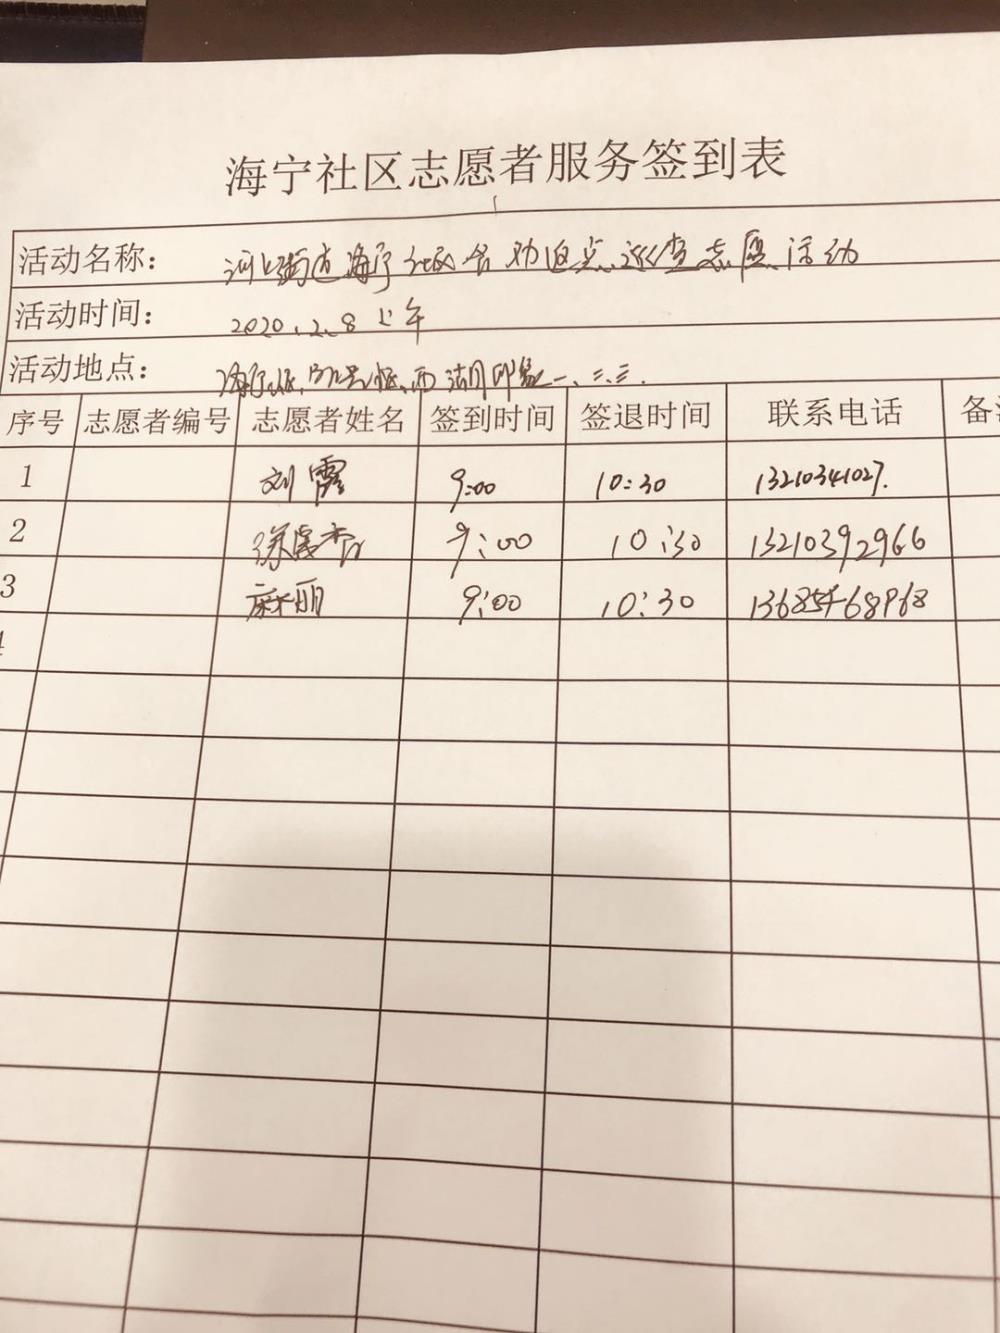 海宁社区志愿者服务签到表
活动名称： 河上街道海宁社区 劝返点巡查志愿活动
活动时间： 2020.2.8 上午
活动地点： 西湖印象一、二、三.
序号 志愿者编号 志愿者姓名 签到时间 签退时间 联系电话 备
1 刘霞 9:00 10:30 13210341027.
2 9:00 10:30 13210392966
3 麻丽 9:00 10:30 13685468968
4